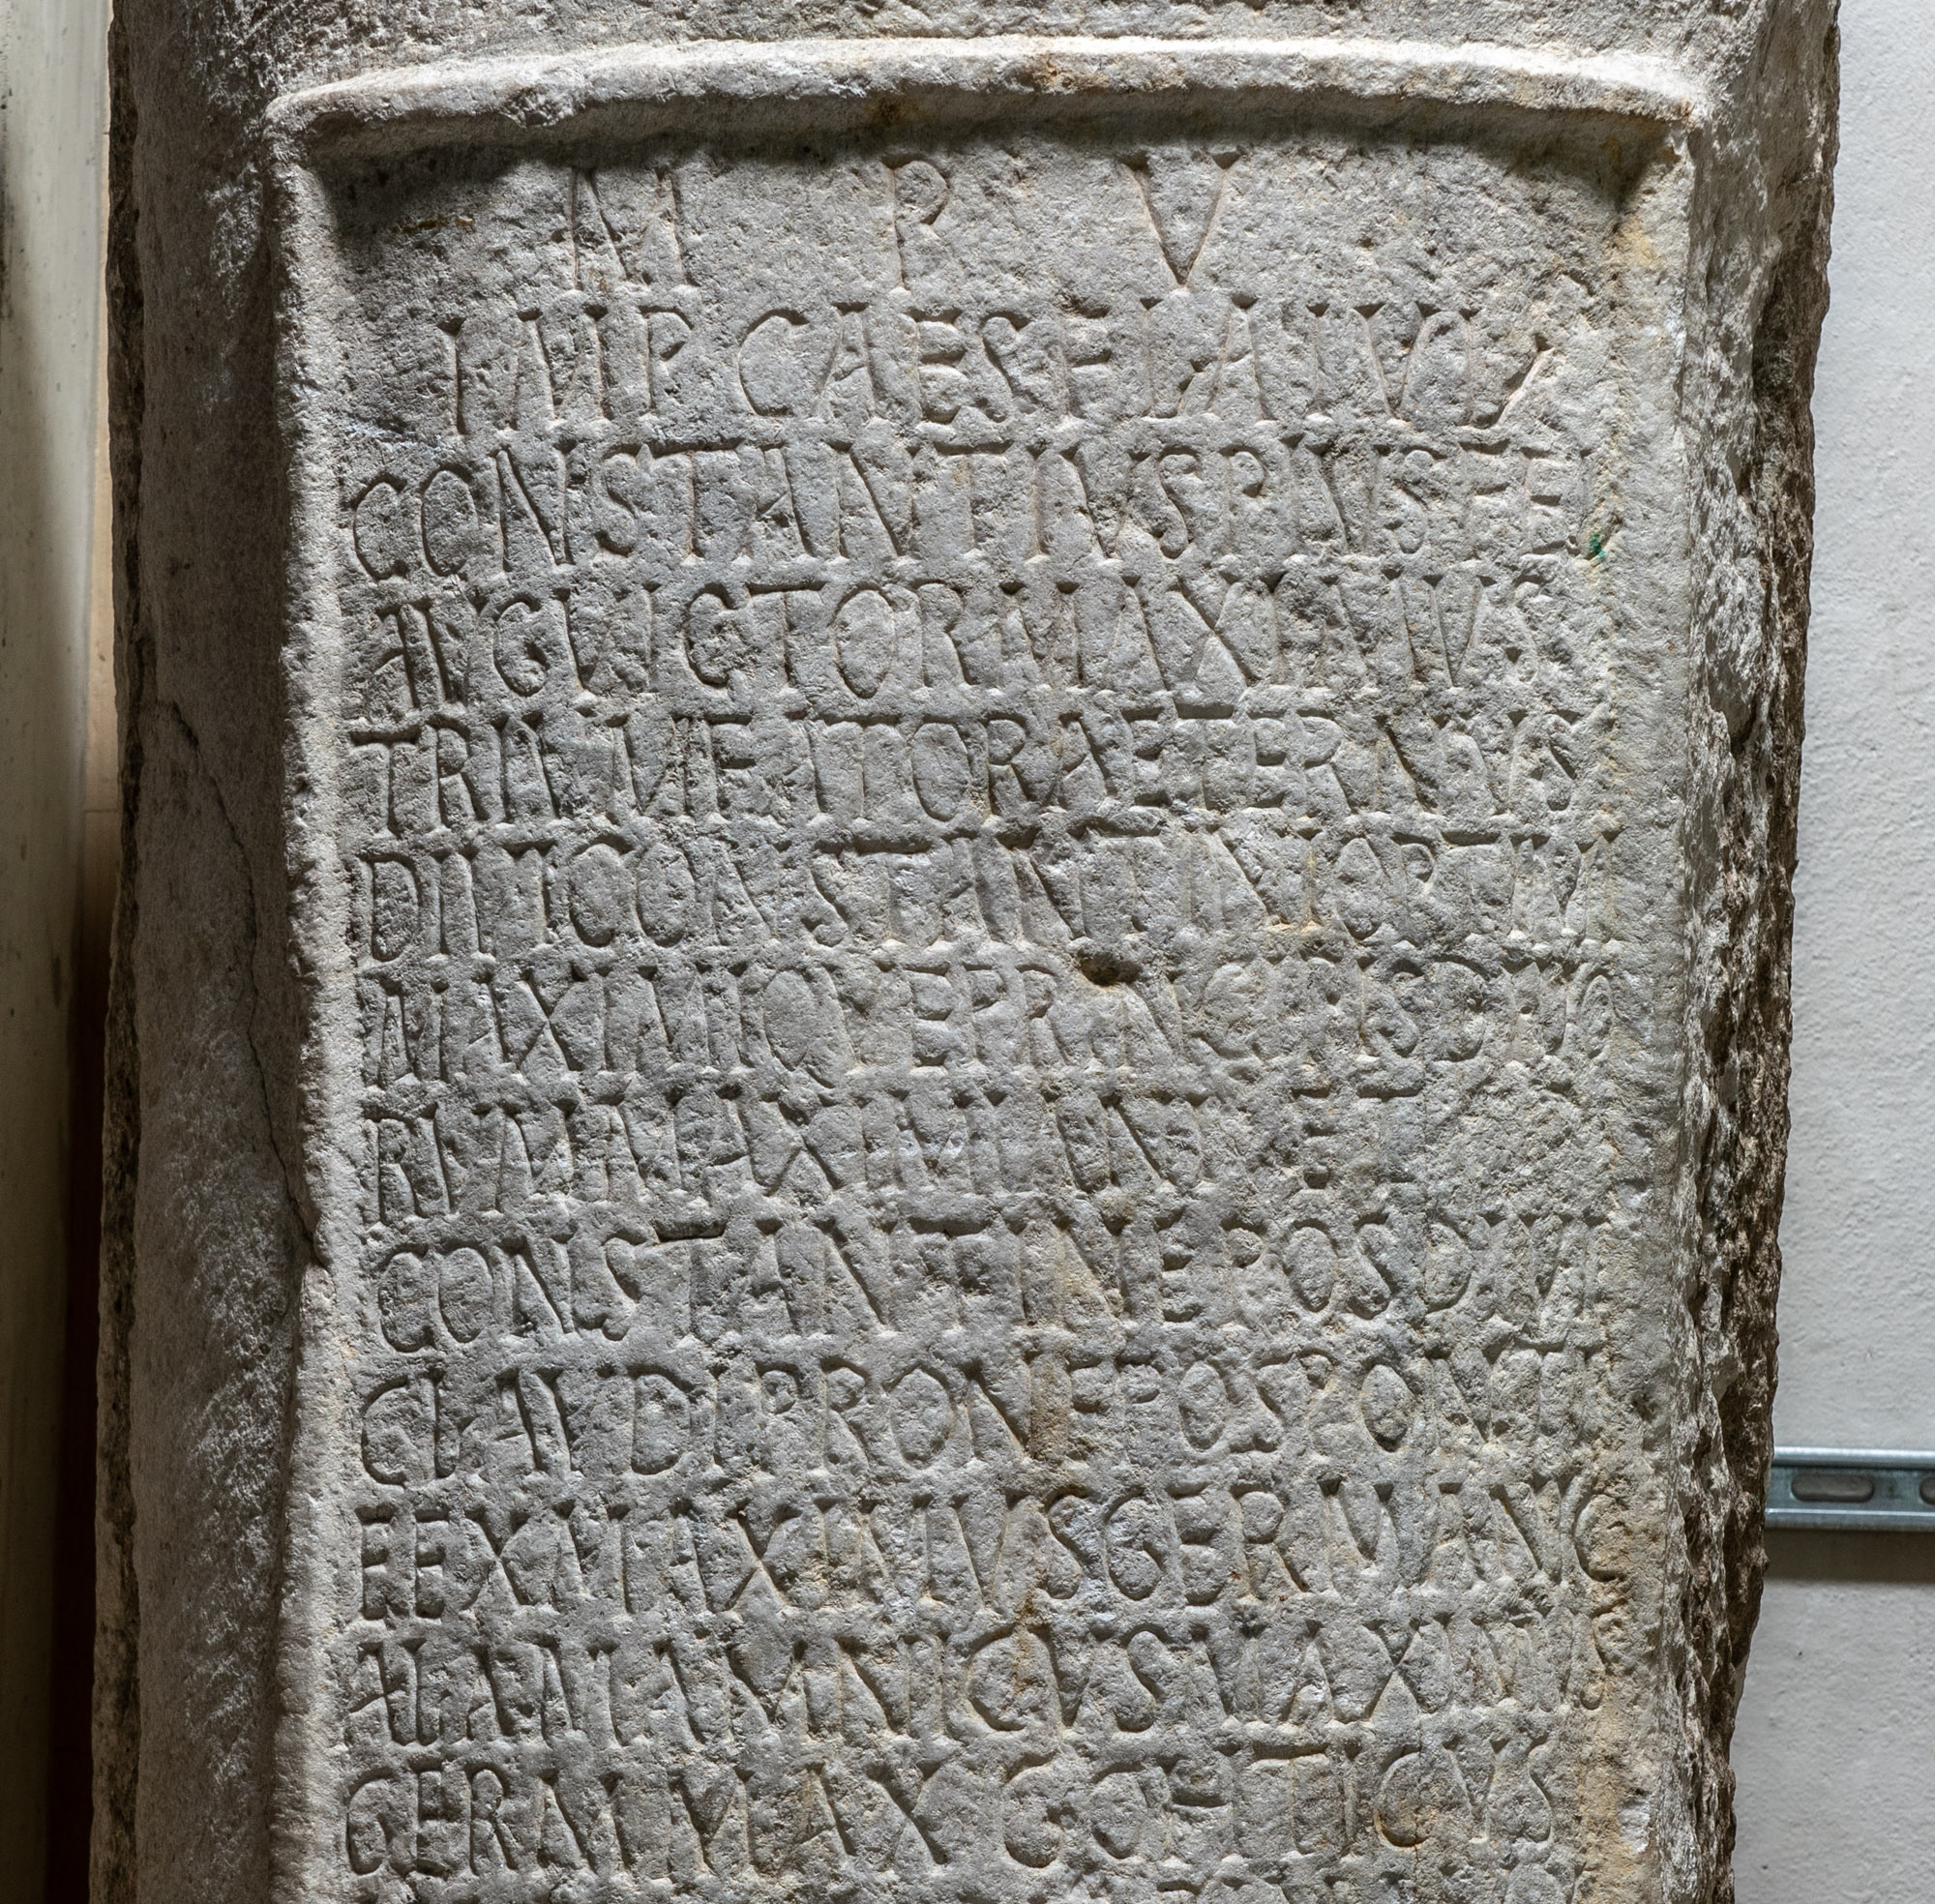 M P V
IMP CAES FLA IVL
CONSTANTIVS PIVS FEL
AVG VICTOR MAXIMVS
TRIVMFITOR AETERNVS
DIVI CONSTANTINI OPTIMI
MAXIMIQVE PRINCIPIS DIVO
RVM MAXIMIANI ET
CONSTANTI NEPOS DIVI
CLAVDI PRONEPOS PONTI
FEX MAXIMVS GERMANIC
ALAMANNICVS MAXIMVS
GERM MAX GOHTICVS